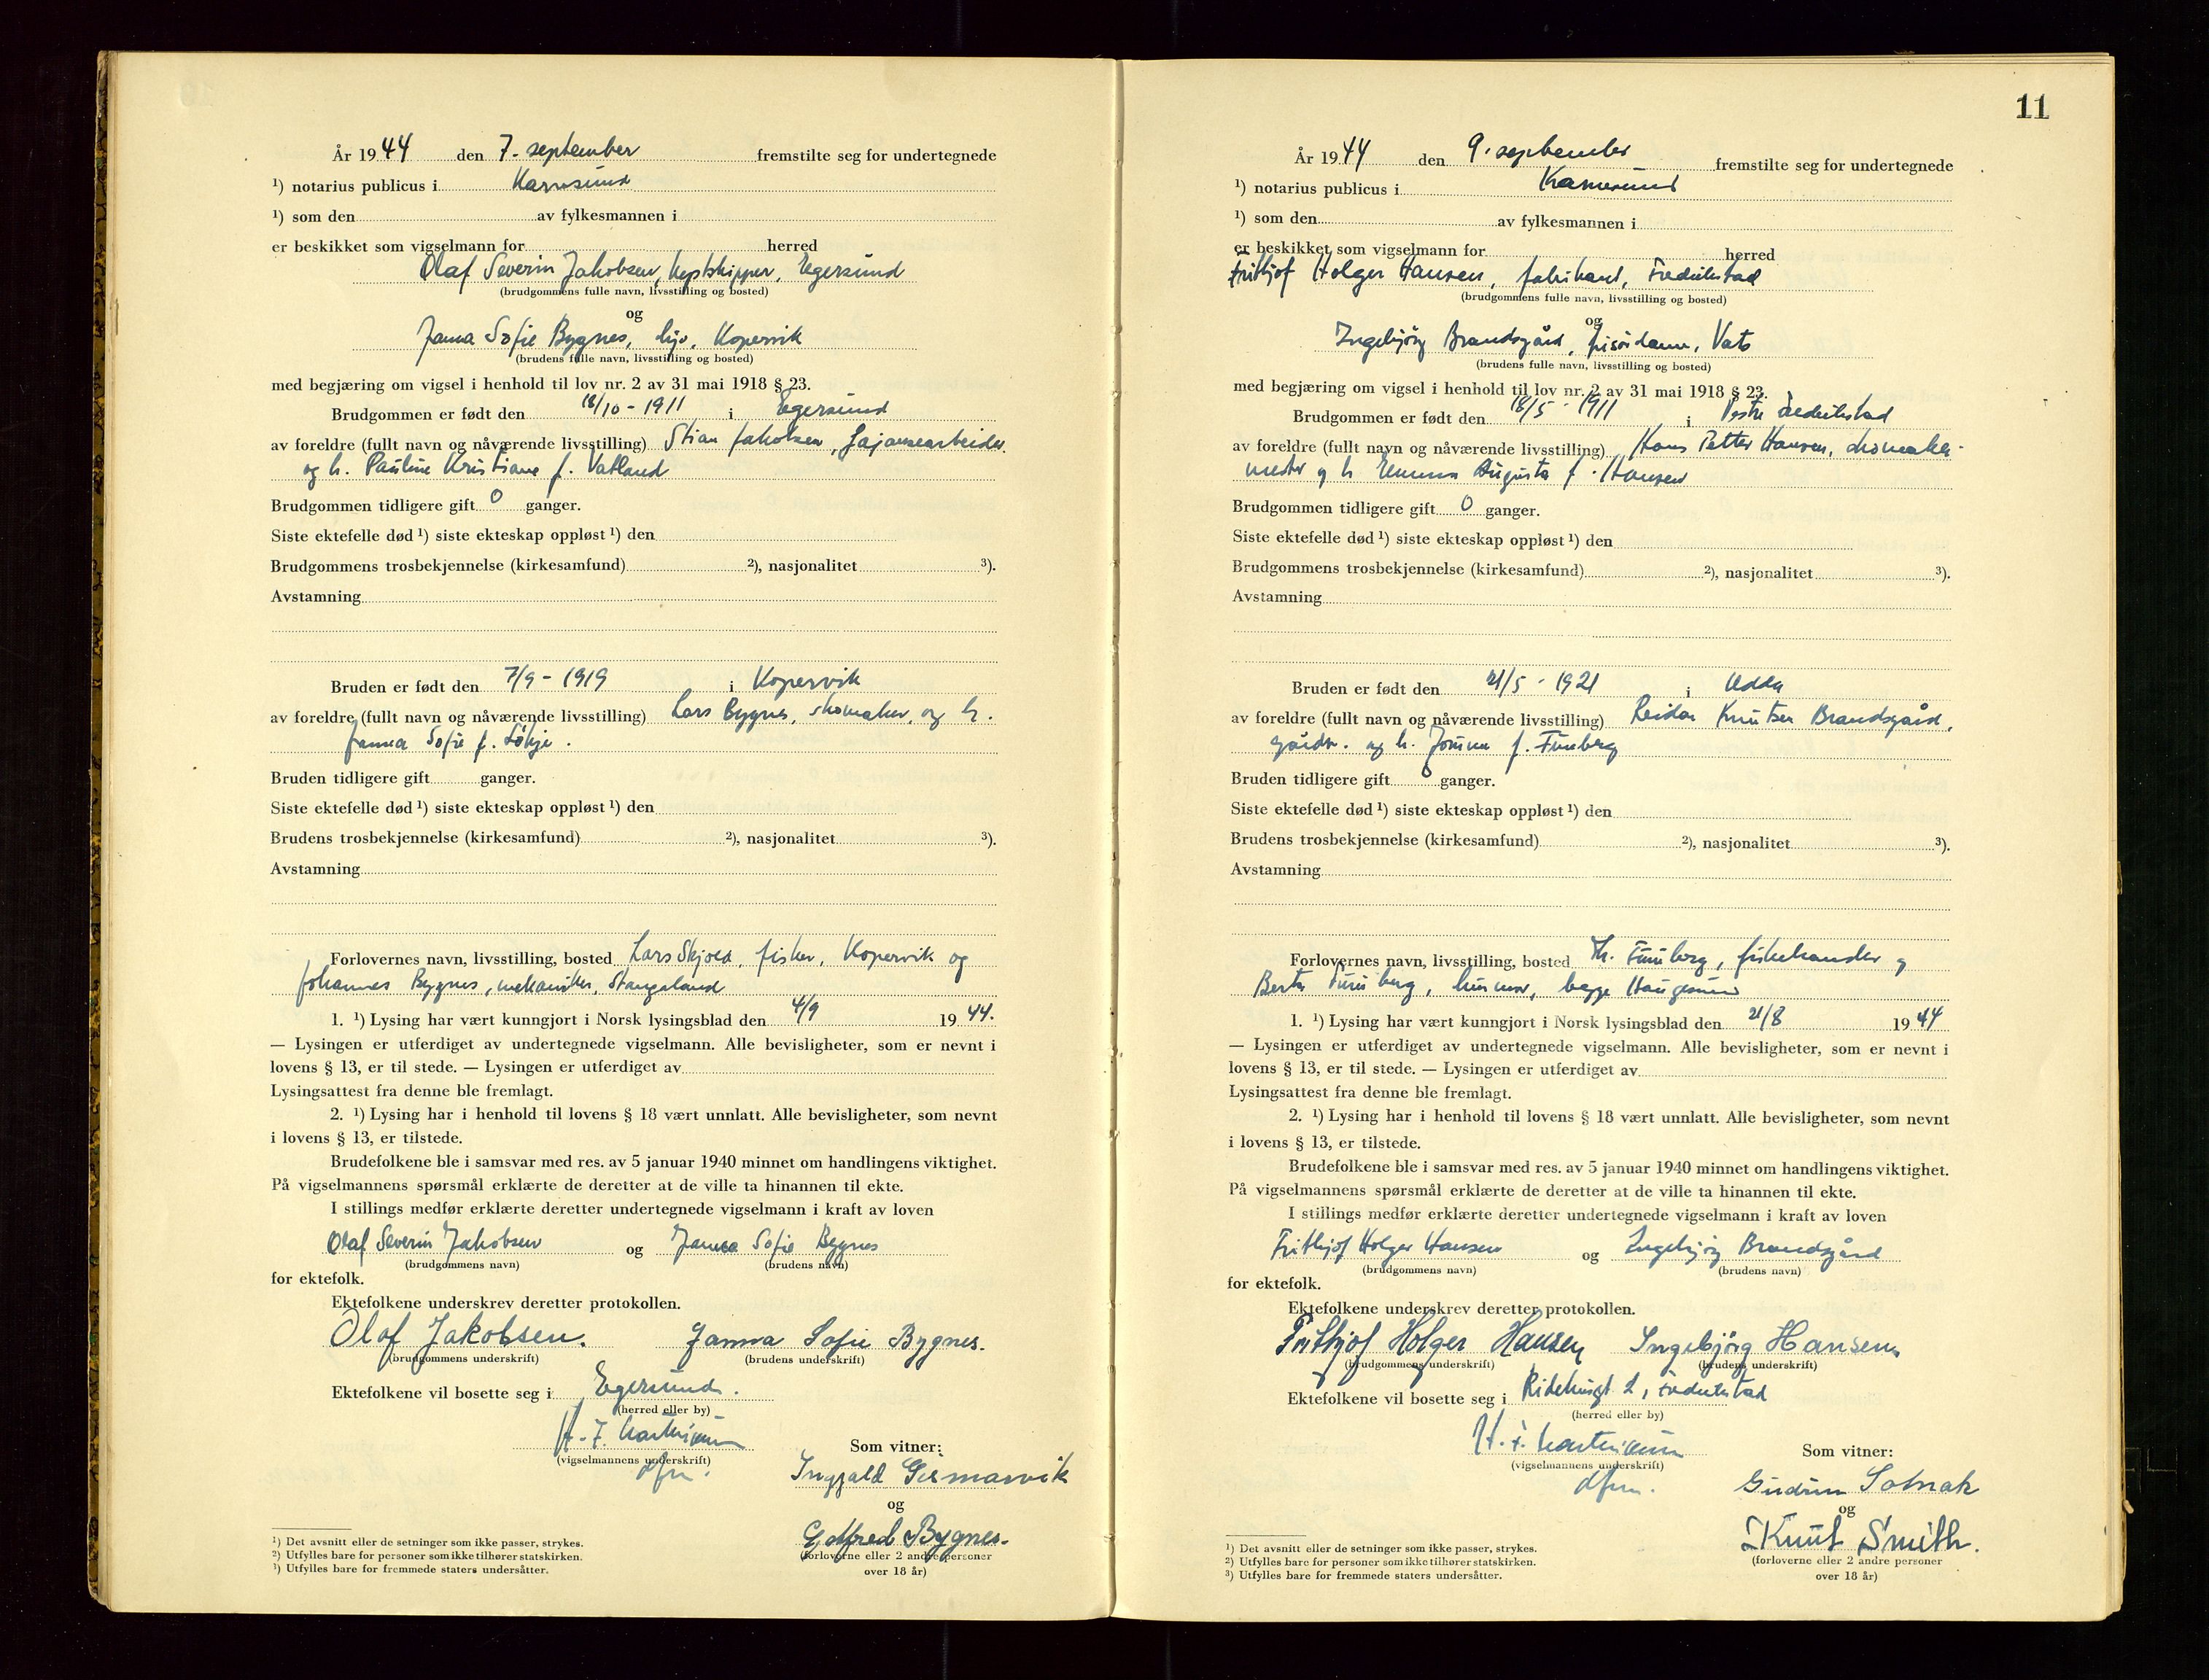 År 1944 den 7. september fremstilte seg for undertegnede
¹) notarius publicus i Karmsund
¹) som den av fylkesmannen i
er beskikket som vigselmann for herred
Olaf Severin Jakobsen, kystskipper, Egersund
(brudgommens fulle navn, livsstilling og bosted)
og
Janna Sofie Bygnes, hjv. Kopervik
(brudens fulle navn, livsstilling og bosted)
med begjæring om vigsel i henhold til lov nr. 2 av 31 mai 1918 § 23.
Brudgommen er født den 18/10 - 1911 i Egersund
av foreldre (fullt navn og nåværende livsstilling) Stian Jakobsen, fajansearbeider
og h. Pauline Kristiane f. Vatland
Brudgommen tidligere gift 0 ganger.
Siste ektefelle død ¹) siste ekteskap oppløst ¹) den
Brudgommens trosbekjennelse (kirkesamfund) ²), nasjonalitet ³).
Avstamning
Bruden er født den 7/9 - 1919 i Kopervik
av foreldre (fullt navn og nåværende livsstilling) Lars Bygnes, skomaker, og h.
Janna Sofie f.
Bruden tidligere gift ganger.
Siste ektefelle død ¹) siste ekteskap oppløst ¹) den
Brudens trosbekjennelse (kirkesamfund) ²), nasjonalitet ³).
Avstamning
Forlovernes navn, livsstilling, bosted Lars Skjold, fisker, Kopervik og
Johannes Bygnes, mekaniker, Stangeland
1. ¹) Lysing har vært kunngjort i Norsk lysingsblad den 4/9 1944.
— Lysingen er utferdiget av undertegnede vigselmann. Alle bevisligheter, som er nevnt i
lovens § 13, er til stede. — Lysingen er utferdiget av
Lysingsattest fra denne ble fremlagt.
2. ¹) Lysing har i henhold til lovens § 18 vært unnlatt. Alle bevisligheter, som nevnt
i lovens § 13, er tilstede.
Brudefolkene ble i samsvar med res. av 5 januar 1940 minnet om handlingens viktighet.
På vigselmannens spørsmål erklærte de deretter at de ville ta hinannen til ekte.
I stillings medfør erklærte deretter undertegnede vigselmann i kraft av loven
Olaf Severin Jakobsen og Janna Sofie Bygnes
(brudgommens navn) (brudens navn)
for ektefolk.
Ektefolkene underskrev deretter protokollen.
Olaf Jakobsen. Janna Sofie Bygnes.
(brudgommens underskrift) (brudens underskrift)
Ektefolkene vil bosette seg i Egersund.
(herred eller by)
H. F.
(vigselmannens underskrift)
Som vitner:
Ingvald Gismarvik
og
Gotfred Bygnes.
(forloverne eller 2 andre personer
over 18 år)
¹) Det avsnitt eller de setninger som ikke passer, strykes.
²) Utfylles bare for personer som ikke tilhører statskirken.
³) Utfylles bare for fremmede staters undersåtter.
11
År 1944 den 9. september fremstilte seg for undertegnede
¹) notarius publicus i Karmsund
¹) som den av fylkesmannen i
er beskikket som vigselmann for herred
Frithjof Holger Hansen, fabrikant, Fredrikstad
(brudgommens fulle navn, livsstilling og bosted)
og
Ingebjørg Brandsgård, frisørdame, Vats
(brudens fulle navn, livsstilling og bosted)
med begjæring om vigsel i henhold til lov nr. 2 av 31 mai 1918 § 23.
Brudgommen er født den 18/5 - 1911 i Vestre Fredrikstad
av foreldre (fullt navn og nåværende livsstilling) Hans Petter Hansen, skomaker-
mester og h Emma Augusta f. Hansen
Brudgommen tidligere gift 0 ganger.
Siste ektefelle død ¹) siste ekteskap oppløst ¹) den
Brudgommens trosbekjennelse (kirkesamfund) ²), nasjonalitet ³).
Avstamning
Bruden er født den 21/5 - 1921 i Odda
av foreldre (fullt navn og nåværende livsstilling) Reidar Knutsen Brandsgård,
gårdbr. og h. f. Fuuberg
Bruden tidligere gift 0 ganger.
Siste ektefelle død ¹) siste ekteskap oppløst ¹) den
Brudens trosbekjennelse (kirkesamfund) ²), nasjonalitet ³).
Avstamning
Forlovernes navn, livsstilling, bosted Th. Fuuberg, fiskehandler og
Berta Fuuberg, husmor, begge Haugesund
1. ¹) Lysing har vært kunngjort i Norsk lysingsblad den 21/8 1944
— Lysingen er utferdiget av undertegnede vigselmann. Alle bevisligheter, som er nevnt i
lovens § 13, er til stede. — Lysingen er utferdiget av
Lysingsattest fra denne ble fremlagt.
2. ¹) Lysing har i henhold til lovens § 18 vært unnlatt. Alle bevisligheter, som nevnt
i lovens § 13, er tilstede.
Brudefolkene ble i samsvar med res. av 5 januar 1940 minnet om handlingens viktighet.
På vigselmannens spørsmål erklærte de deretter at de ville ta hinannen til ekte.
I stillings medfør erklærte deretter undertegnede vigselmann i kraft av loven
Frithjof Holger Hansen og Ingebjørg Brandsgård
(brudgommens navn) (brudens navn)
for ektefolk.
Ektefolkene underskrev deretter protokollen.
Frithjof Holger Hansen Ingebjørg Hansen
(brudgommens underskrift) (brudens underskrift)
Ektefolkene vil bosette seg i 2, Fredrikstad
(herred eller by)
H. F.
(vigselmannens underskrift)
Som vitner:
Gudrun
og
Knut Smith.
(forloverne eller 2 andre personer
over 18 år)
¹) Det avsnitt eller de setninger som ikke passer, strykes.
²) Utfylles bare for personer som ikke tilhører statskirken.
³) Utfylles bare for fremmede staters undersåtter.